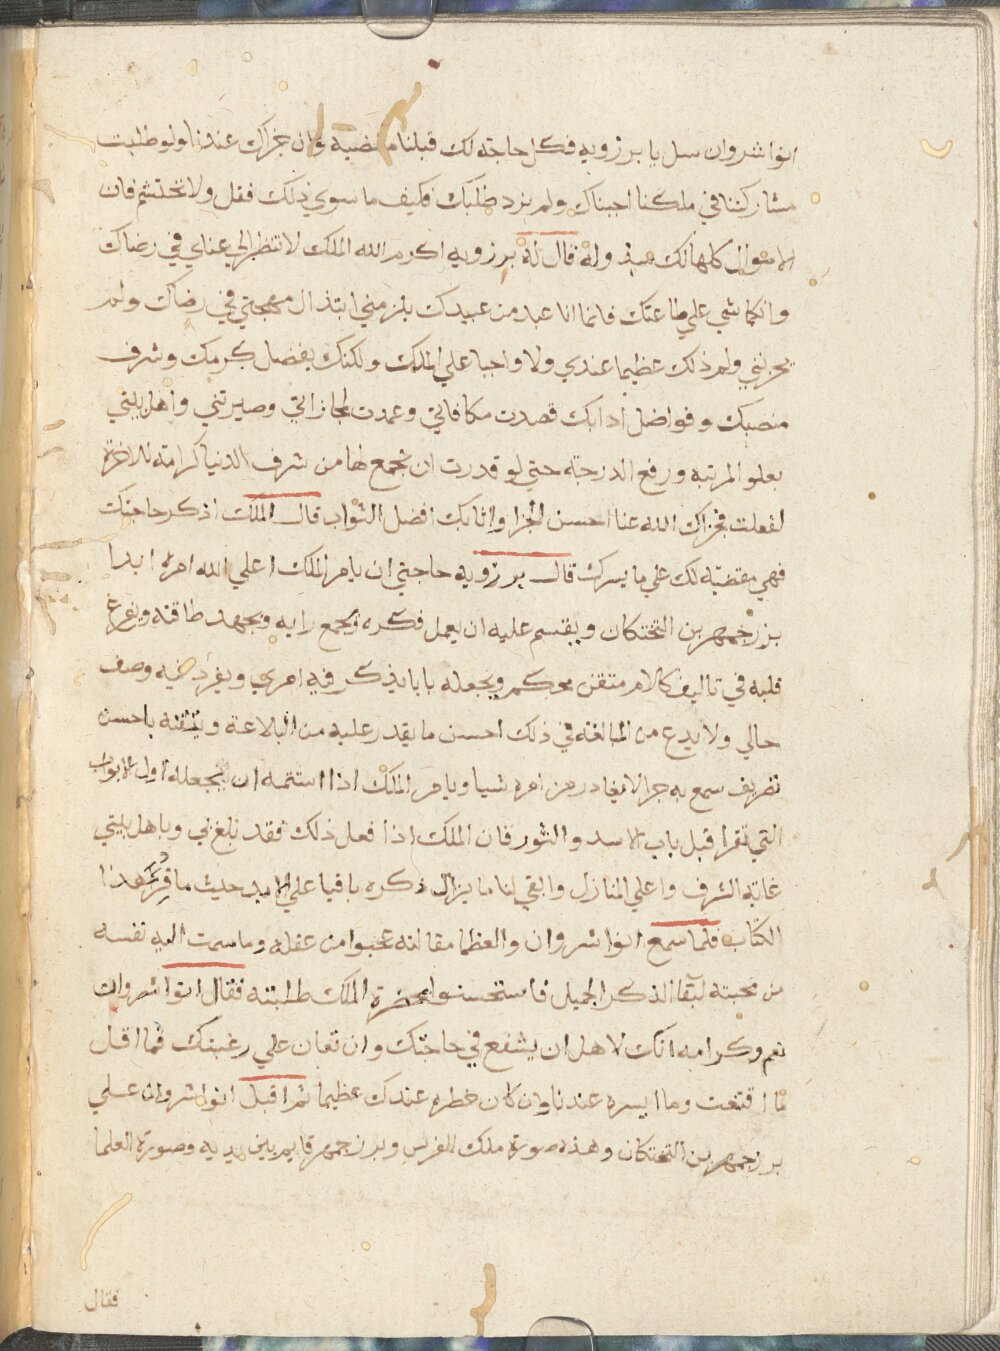 انوا شروان سل يا برزويه فكل حاجة لك قبلنا مقضية وان جزاك عندنا ولو طلبت
مشاركتنا في ملكنا اجبناك ولم نرد طلبك فكيف ما سوي ذلك فقل ولا تحتشم فان
الاموال كلها لك مبذوله قال له برزويه اكرم الله الملك لا تنظر الي عناي في رضاك
وانكماشي علي طاعتك فانما انا عبد من عبيدك يلزمني ابتذال مهجتي في رضاك ولم
تجزيني ولم ذلك عظيما عندي ولا واجبا علي الملك ولكنك بفضل كرمك وشرف
منصبك وفواضل ادابك قصدت مكافاتي وعمدت لمجازاتي وصيرتني واهل بيتي
بعلو المرتبه ورفع الدرجة حتي لو قدرت ان تجمع لنا من شرف الدنيا كرامة للاخرة
لفعلت فجزاك الله عنا احسن الجزا واثابك افضل الثواب قال الملك اذكر حاجتك
فهي مقضية لك علي ما يسرك قال برزويه حاجتي ان يامر الملك اعلي الله امره ابدا
بزرجمهر بن التختكان ويقسم عليه ان يعمل فكره ويجمع رايه ويجهد طاقته ويفرغ
قلبه في تاليف كلام متقن محكم ويجعله بابا يذكر فيه امري ويفرد فيه وصف
حالي ولا يدع من المبالغة في ذلك احسن ما يقدر عليه من البلاغة ويتقنه باحسن
تضريف سمع به جز الا يغادر من امره شيا ويامر الملك اذا استتمه ان يجعله اول الابواب
التي تقرا قبل باب الاسد والثور فان الملك اذا فعل ذلك فقد بلغ بي وباهل بيتي
غاية الشرف واعلي المنازل وابقي لنا ما يزال ذكره باقيا علي الابد حيث ما قري هذا
الكتاب فلما سمع انوا شروان والعظما مقالته عجبوا من عقله وما سمت اليه نفسه
من محبته لبقا الذكر الجميل فاستحسنوا بحضرة الملك طلبته فقال انوا شروان
نعم وكرامه انك لاهل ان يشفع في حاجتك وان تعان علي رغبتك فما اقل
ما اقتنعت وما ايسره عندنا وان كان خطره عندك عظيما ثم اقبل انوا شروان علي
برزجمهر بن التختكان وهذه صورة ملك الفرس وبرزجمهر قايم بين يديه وصورة العلما
فقال